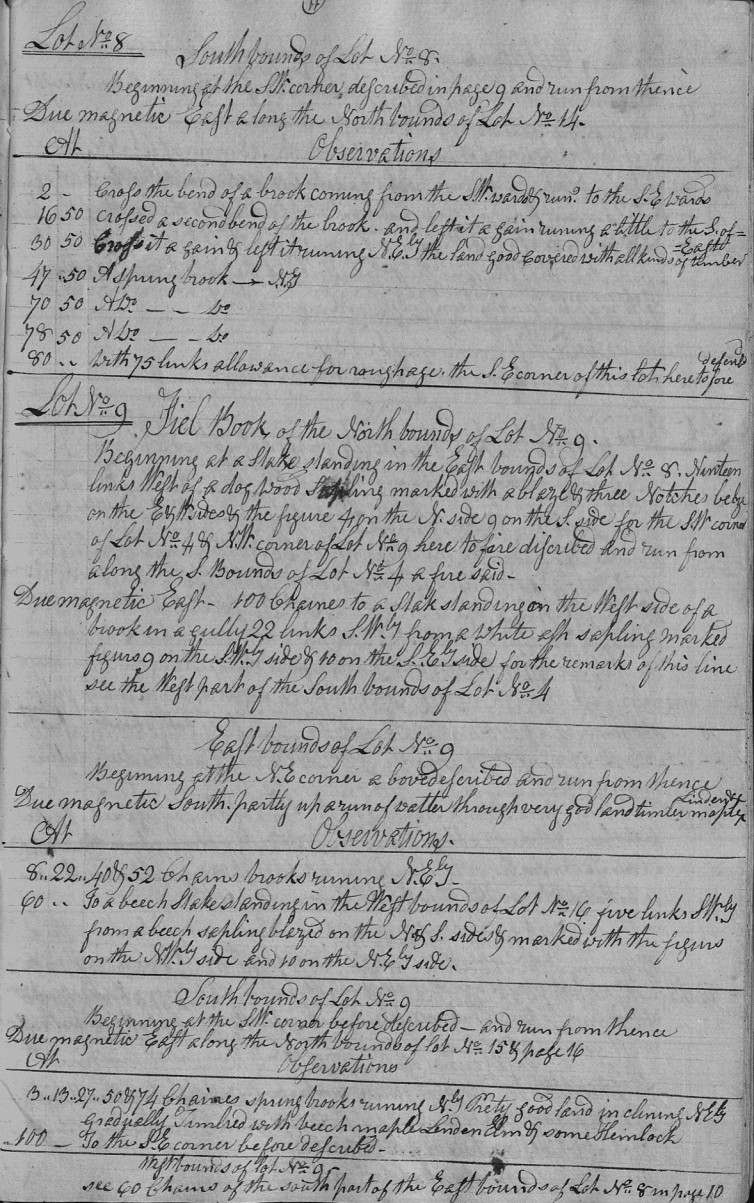 11
Lot No. 8
South bounds of Lot No. 8.
Beginning at the S.W. corner, described in page 9 and run from thence
Due magnetic East along the North bounds of Lot No. 14.
At Observations
2 - Cross the bend of a brook coming from the S.W. ward & run.g to the S.E wards
16 50 crossed a second bend of the brook. and left it a gain runing a little to the S. of =
= East
30 50 Cross it a gain & left it runing N.E.ly the land good covered with all kinds of timber
47 .. 50 A spring brook — N.ly
70 50 A Do — — Do
78 50 A Do — — Do
80 .. With 75 links allowance for roughage. the S.E corner of this lot, here to fore
defend
Lot No. 9
Fiel Book, of the North bounds of Lot No. 9.
Beginning at a Stake, standing in the East bounds of Lot No. 8. Ninteen
links West of a dog wood Sapling marked with a blaze & three Notches
on the E & W sides & the figure 4 on the N. side 9 on the S. side for the S.W. corner
of Lot No. 4 & N.W. corner of Lot No. 9 here to fore discribed and run from
along the S. Bounds of Lot No. 4 a fire said -
Due magnetic East - 100 Chaines to a Stak standing on the West side of a
brook in a gully 22 links S.W.ly from a white ash sapling marked
figurs 9 on the S.W.ly side & 10 on the S.E.ly side for the remarks of this line
see the West part of the South bounds of Lot No. 4
East bounds of Lot No. 9
Beginning at the N.E corner a bove described and run from thence
Due magnetic South. partly up a run of watter through very god land timber maple
Linden &
At Observations.
8 .. 22 .. 40 & 52 Chains brooks runing N.E.ly -
60 .. To a beech Stake standing in the West bounds of Lot No. 16 five links S.W.ly
from a beech sapling blazed on the N & S. sides & marked with the figurs
on the N.W.ly side and 10 on the N.E.ly side.
South bounds of Lot No. 9
Beginning at the S.W. corner before described - and run from thence
Due magnetic East along the North bounds of lot No. 15 & page 16
At Observations
3 .. 13 .. 27 .. 50 & 74 Chaines spring brooks runing N.ly Prety good land in clining N.E.ly
gradually Timbred with beech maple Linden Elm & some Hemlock
100 - To the S.E corner before described -
West bounds of lot No. 9
see 60 Chains of the south part of the East bounds of Lot No. 8 in page 10